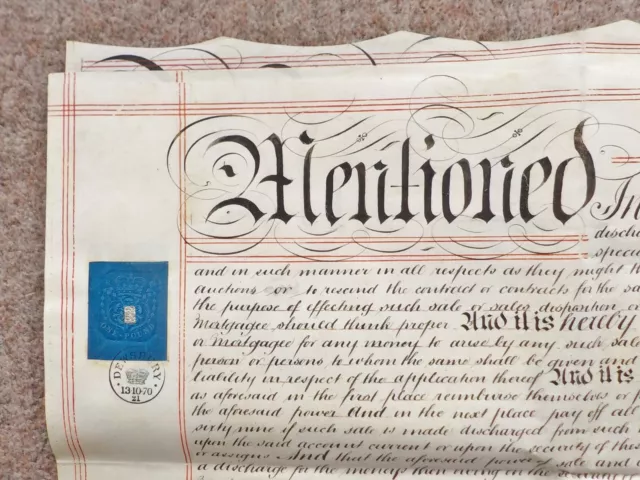 Mentioned In
discha
special
and in such manner in all respects as they might th
auctions or to rescind the contract or contracts for the sa
the purpose of effecting such sale or sales disposition or
Mortgagee should think proper And it is hereby
or Mortgagee for any money to arise by any such sale
person or persons to whom the same shall be given and
liability in respect of the application thereof And it is
as aforesaid in the first place reimburse themselves or
the aforesaid power And in the next place pay off all
sixty nine if such sale is made discharged from such
upon the said account current or upon the security of this
or assigns And that the aforesaid power of sale and
a discharge for the moneys then owing on the security
DEWSBURY
13·10·70
21